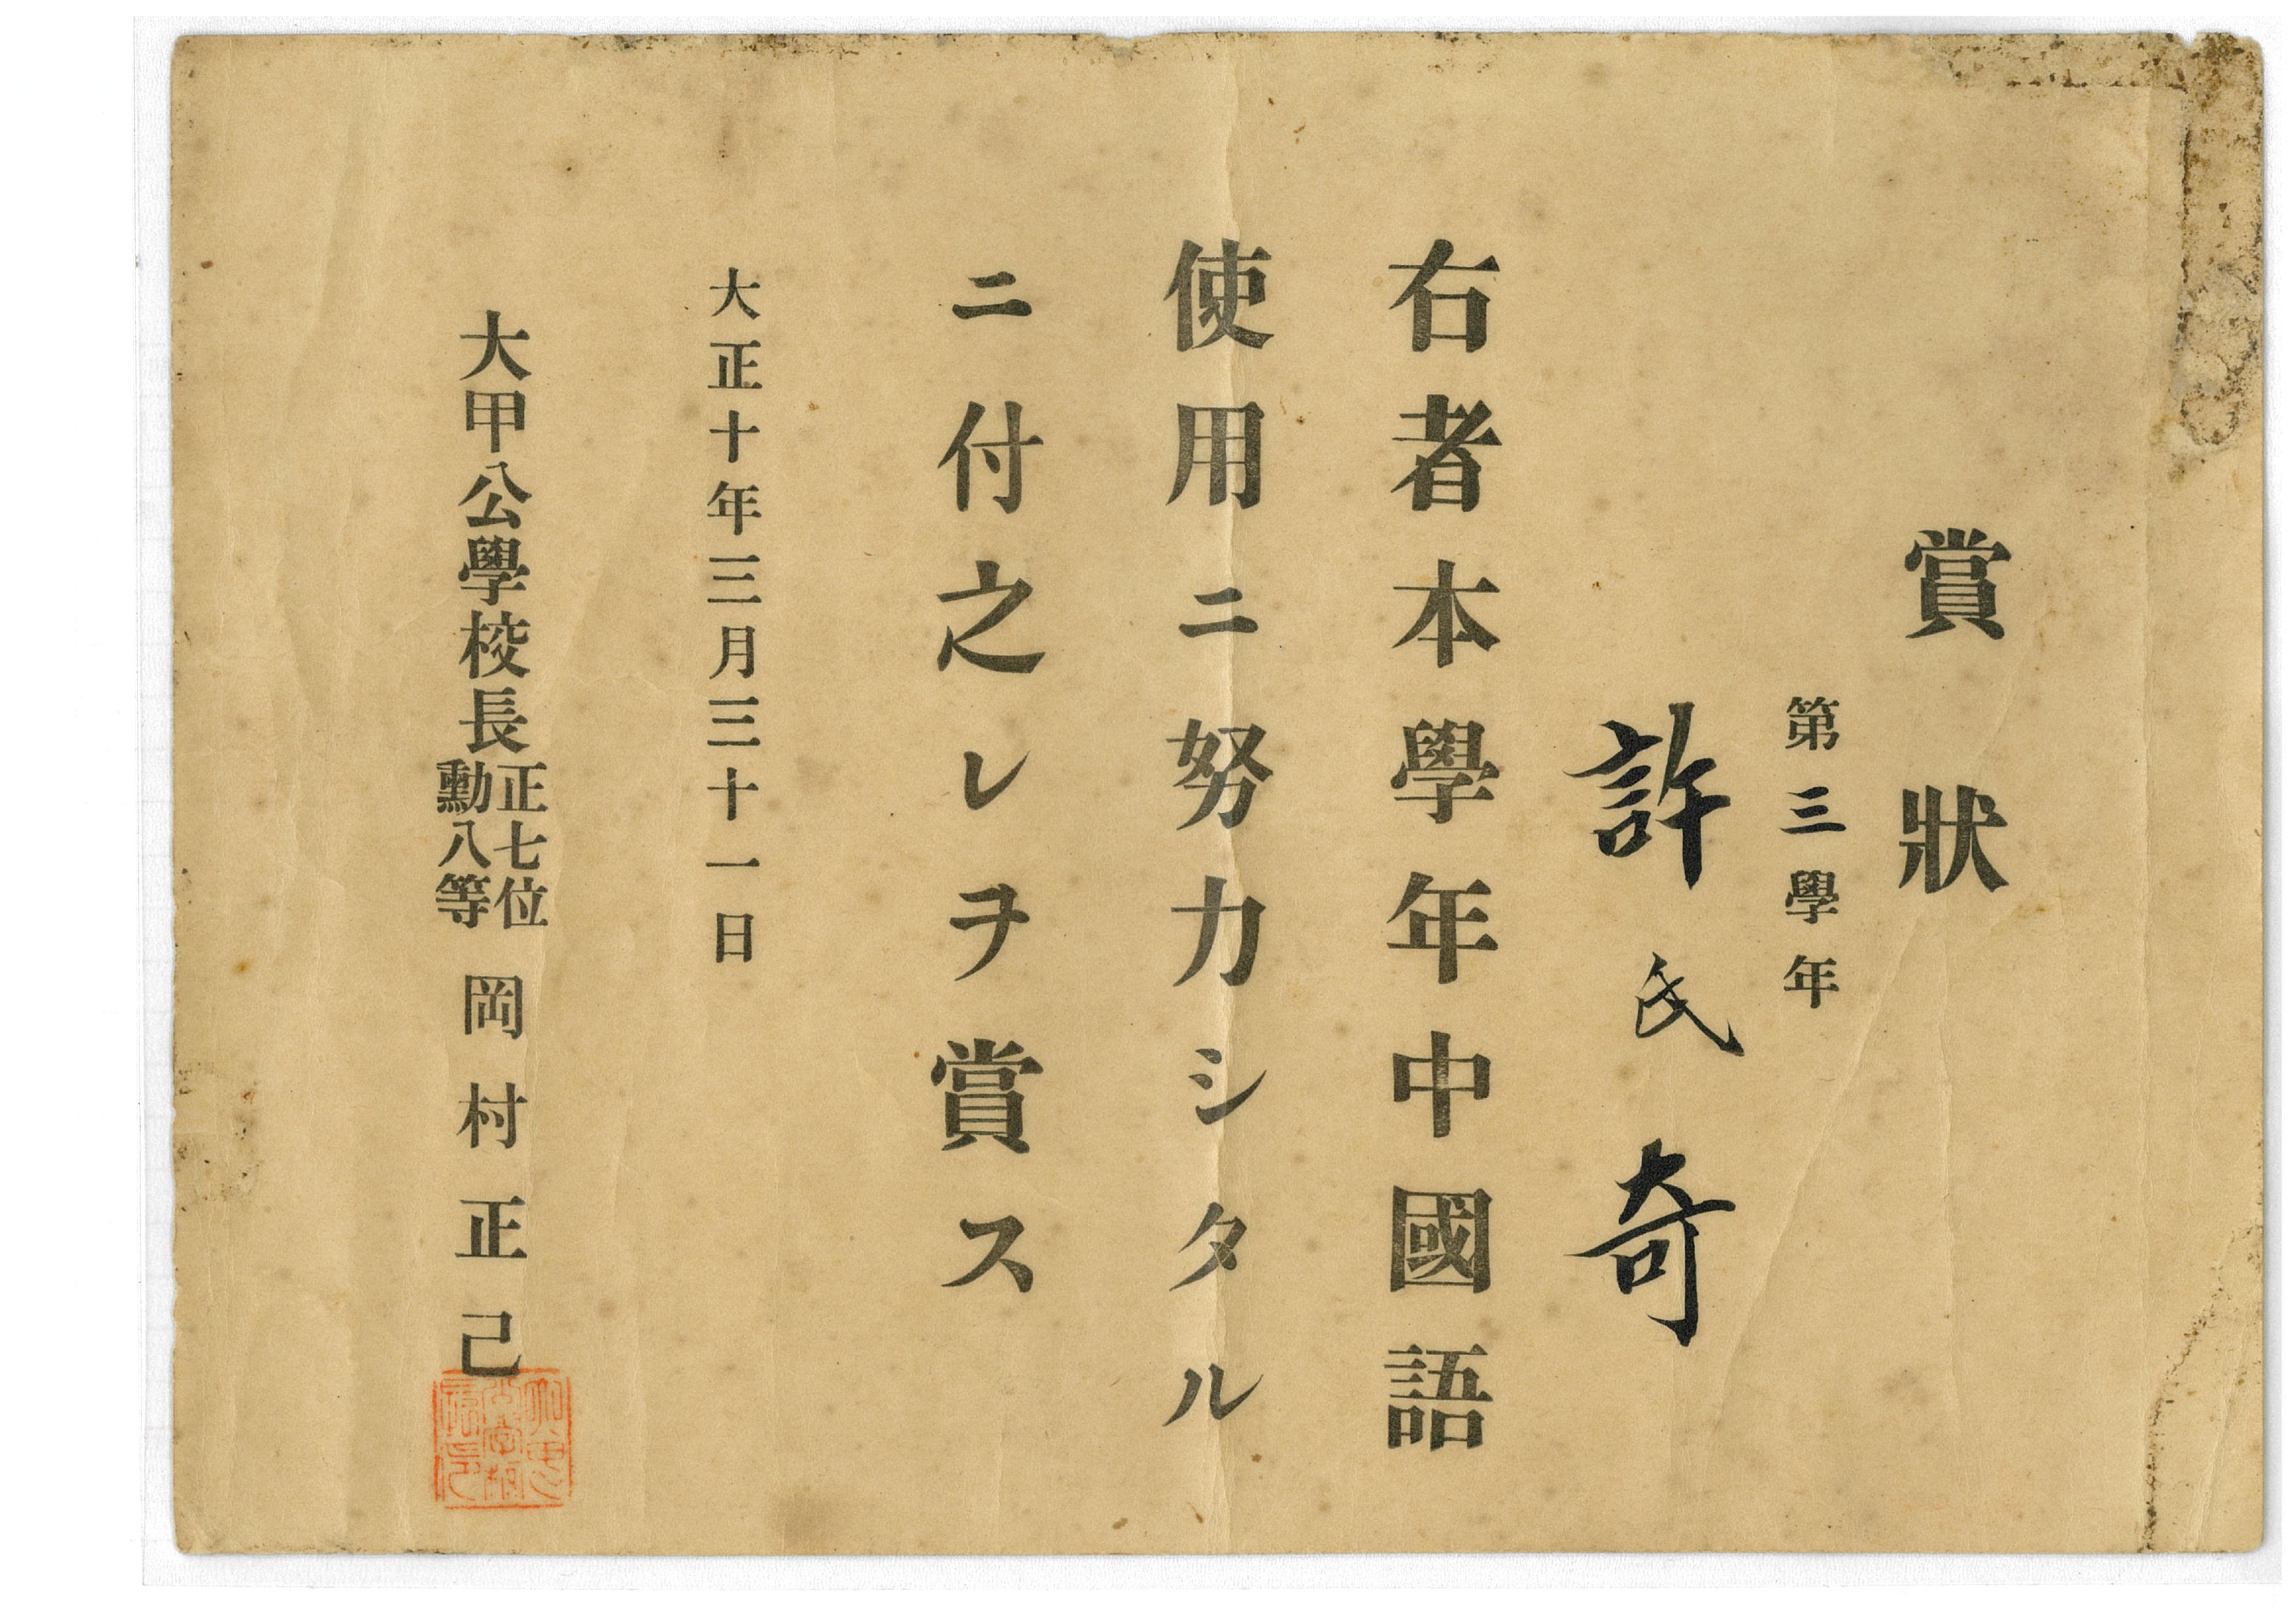 賞狀
第三學年
許氏奇
右者本學年中國語
使用ニ努力シタル
ニ付之レヲ賞ス
大正十年三月三十一日
大甲公學校長正七位勳八等 岡村正己
大甲公學校長印